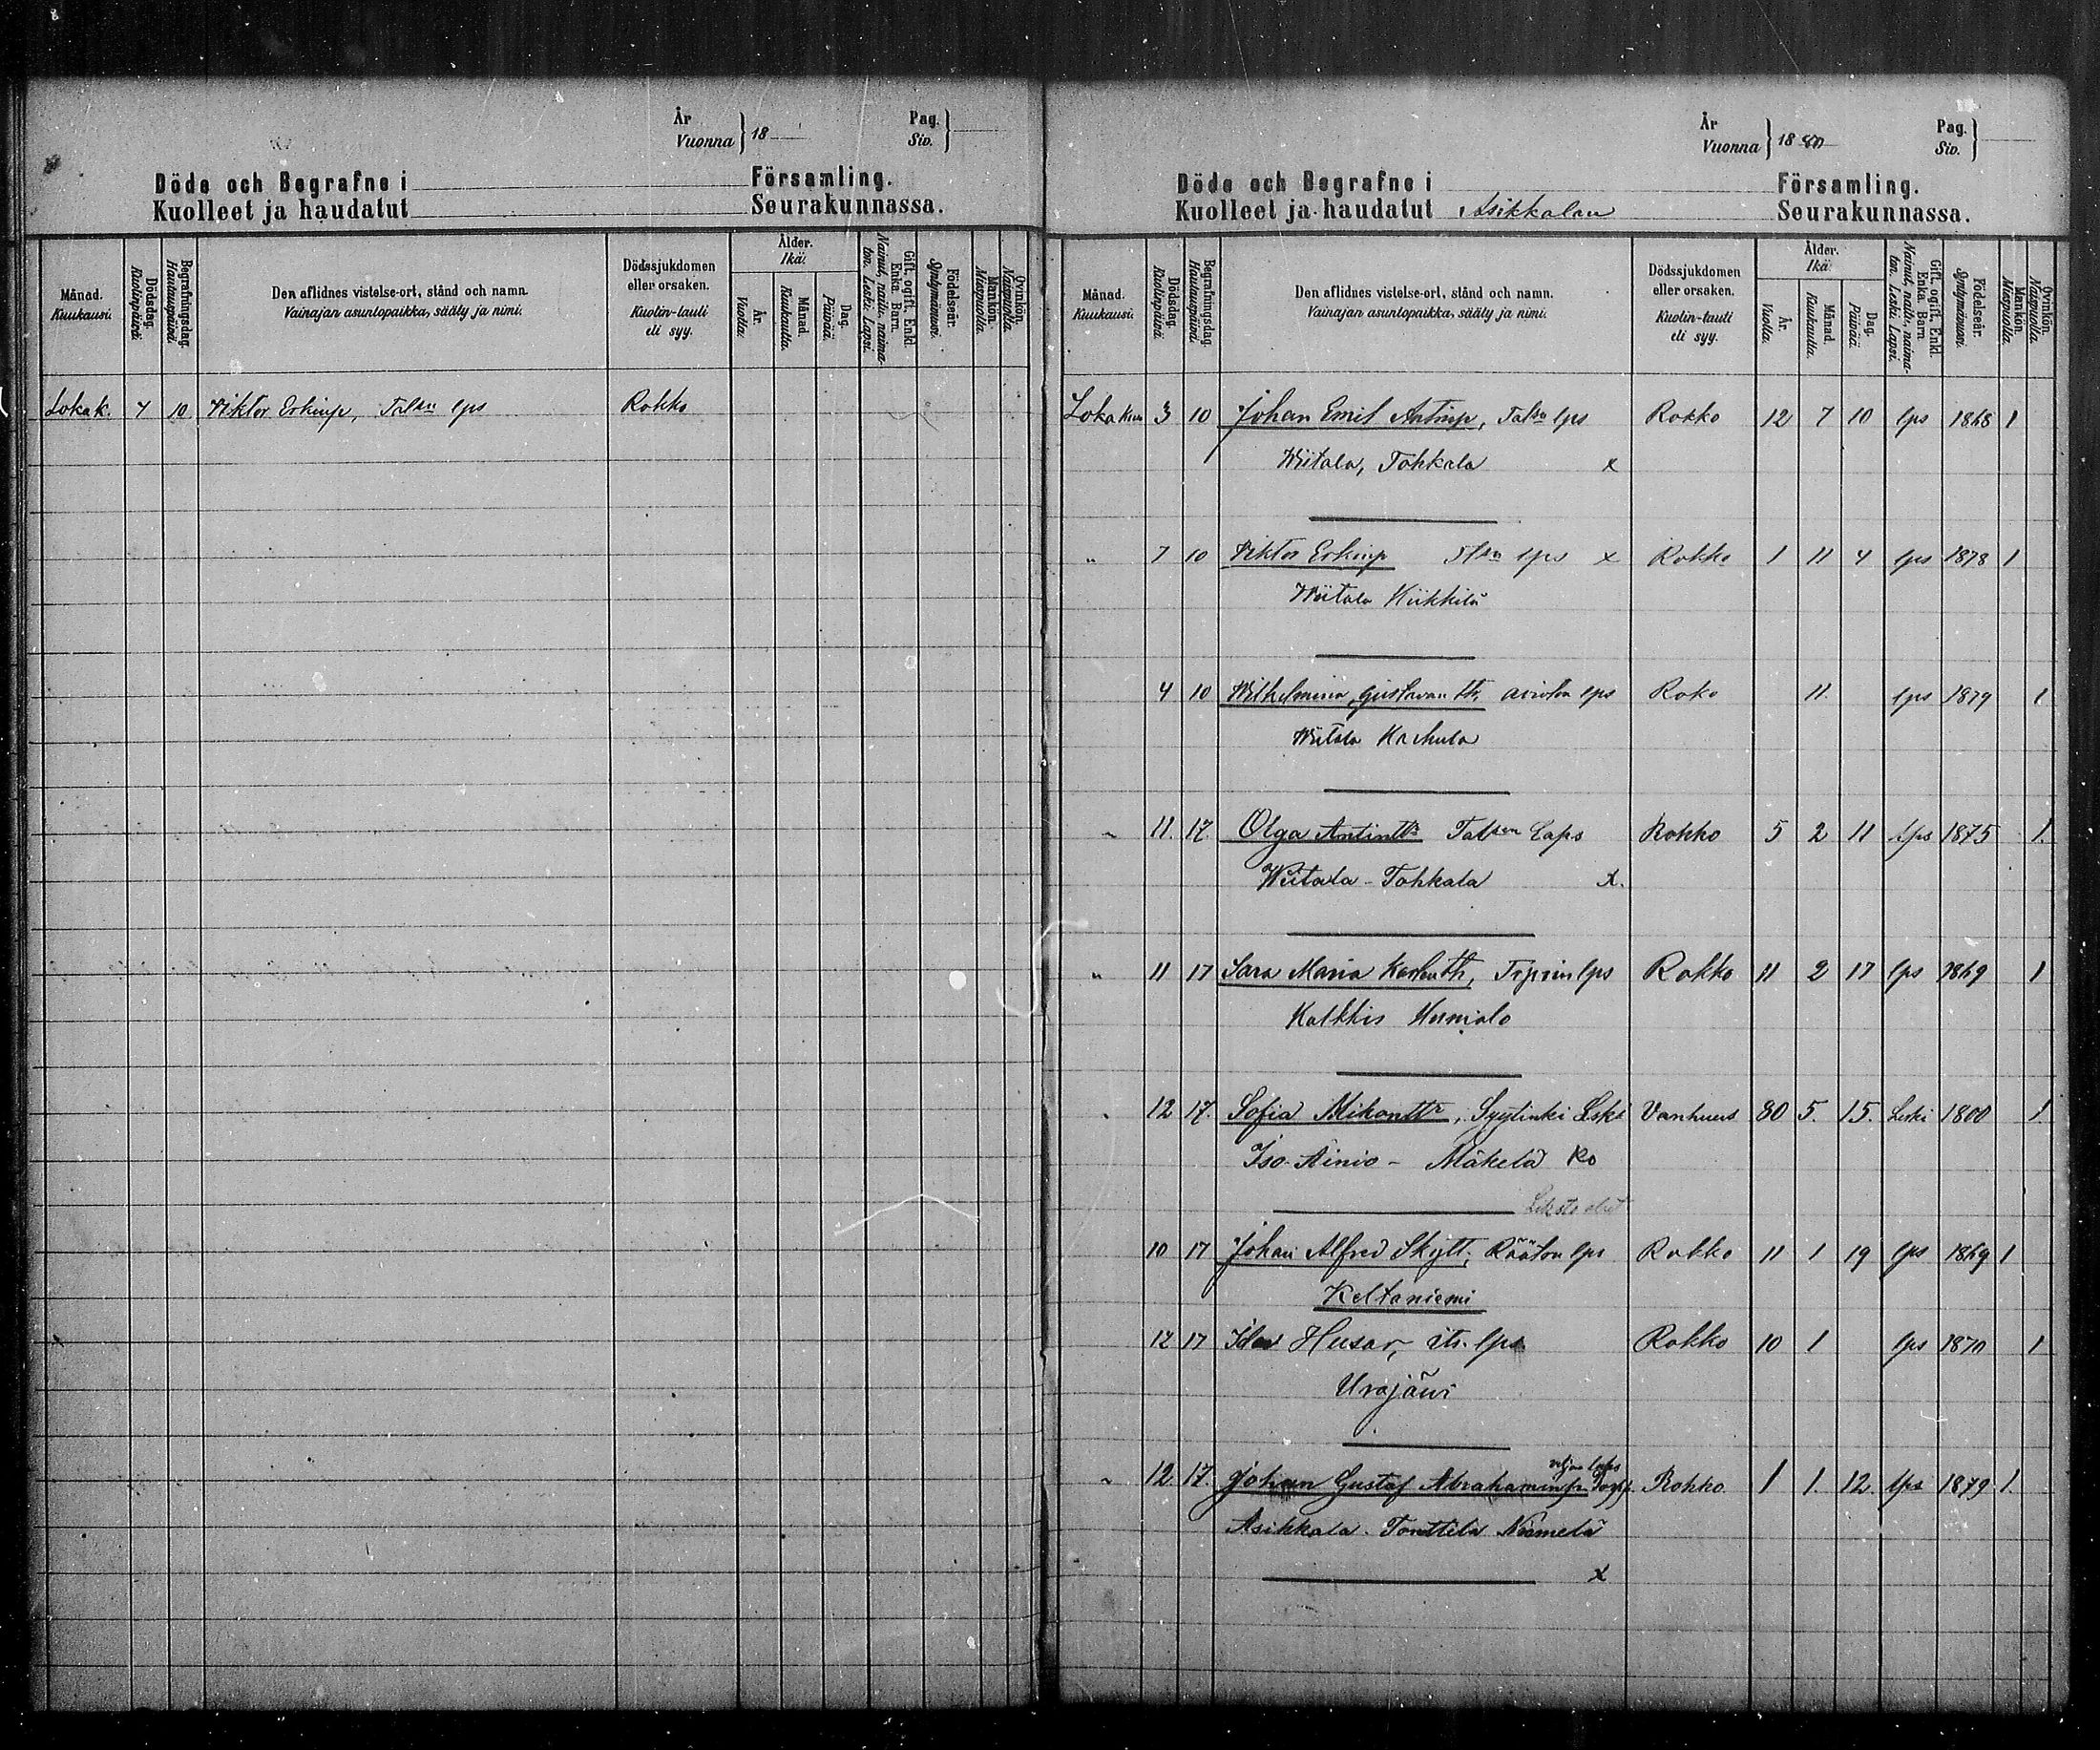 År
Vuonna } 18
Pag.
Siv. }
Döde och Begrafne i Församling.
Kuolleet ja haudatut Seurakunnassa.
Månad.
Kuukausi.
Dödsdag.
Kuolinpäivä.
Begrafningsdag.
Hautauspäivä.
Den aflidnes vistelse-ort, stånd och namn.
Vainajan asuntopaikka, sääty ja nimi.
Dödssjukdomen
eller orsaken.
Kuolin-tauti
eli syy.
Ålder.
Ikä.
År.
Vuotta.
Månad.
Kuukautta.
Dag.
Päivää.
Gift, ogift, Enkl.
Enka. Barn.
Nainut, naitu, naima-
ton. Leski. Lapsi.
Födelseår.
Syntymävuosi.
Mankön.
Miespuolta.
Qvinkön.
Naispuolta.
Lokak. 7 10 Viktor Erkinp, Talsn lps Rokko
År
Vuonna } 1880
Pag.
Siv. }
Döde och Begrafne i Församling.
Kuolleet ja haudatut Asikkalan Seurakunnassa.
Månad.
Kuukausi.
Dödsdag.
Kuolinpäivä.
Begrafningsdag.
Hautauspäivä.
Den aflidnes vistelse-ort, stånd och namn.
Vainajan asuntopaikka, sääty ja nimi.
Dödssjukdomen
eller orsaken.
Kuolin-tauti
eli syy.
Ålder.
Ikä.
År.
Vuotta.
Månad.
Kuukautta.
Dag.
Päivää.
Gift, ogift, Enkl.
Enka. Barn.
Nainut, naitu, naima-
ton. Leski. Lapsi.
Födelseår.
Syntymävuosi.
Mankön.
Miespuolta.
Qvinkön.
Naispuolta.
Lokakuu 3 10 Johan Emil Antinp, Talsn lps Rokko 12 7 10 lps 1868 1
Wiitala, Tohkala x
" 7 10 Viktor Erkinp lps x Rokko 1 11 4 lps 1878 1
Wiitala Kiikkilä
4 10 Wilhelmina Gustavan th, lps Roko 11. lps 1879 1
Wiitala
" 11. 17. Olga Antintr Talsen Laps Rokko 5 2 11 lps 1875 1.
Wiitala - Tohkala x.
" 11 17 Sara Maria lps Rokko 11 2 17 lps 1869 1
Kalkkis
" 12 17. Sofia Mikontr, Syytinki Leski Vanhuus 80 5. 15. Leski 1800 1.
Iso-Äinio - Mäkelä Ko
10 17 Johan Alfred Skytt, Räätön lps Rokko 11 1 19 lps 1869 1
Keltaniemi
12 17 Ida Husar, its. lps Rokko 10 1 lps 1870 1
Urajärvi
" 12. 17. Johan Gustaf Abrahaminp. Rokko 1 1 12. lps 1879 1.
Asikkala. Tonttila Niemelä
x